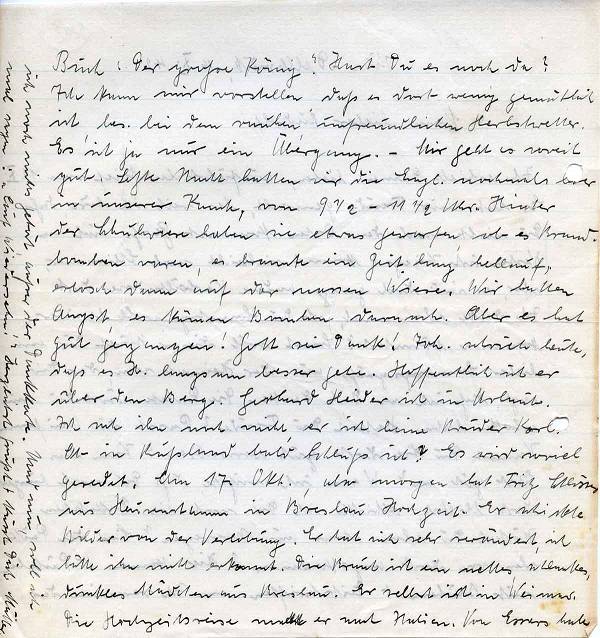 Buch: „Der große König“? Hast Du es noch da?
Ich kann mir vorstellen, daß es dort wenig gemütlich
ist, bes. bei dem rauhen, unfreundlichen Herbstwetter.
Es ist ja nur ein Übergang. – Mir geht es soweit
gut. Letzte Nacht hatten wir die Engl. nochmals hier
in unserer Kante, von 9 1/2 – 11 1/2 Uhr. Hinter
der Schulwiese haben sie etwas geworfen, ob es Brand-
bomben waren, es brannte ein Zeit lang hellauf,
erlosch dann auf der nassen Wiese. Wir hatten
Angst, es kämen Bomben darnach. Aber es hat
gut gegangen! Gott sei Dank! Joh. schrieb heute,
daß es H. langsam besser gehe. Hoffentlich ist er
über den Berg. Gerhard Heider ist in Urlaub.
Ich sah ihn noch nicht, er ist seine Bruder Karl.
Ob in Rußland bald Schluß ist? Es wird soviel
geredet. Am 17. Okt., also morgen hat Fritz
aus in Breslau Hochzeit. Er schickte
Bilder von der Verlobung. Er hat sich sehr verändert, ich
hätte ihn nicht erkannt. Die Braut ist ein nettes, schlankes,
dunkles Mädchen aus Breslau. Er selbst ist in Weimar.
Die Hochzeitsreise macht er nach Italien. Von Essers habe
ich noch nichts gehört außer der Dankkarte. Und nun, soll ich
mal sagen: auf Wiedersehn! Herzlichst grüßt u. küsst Dich Mutter